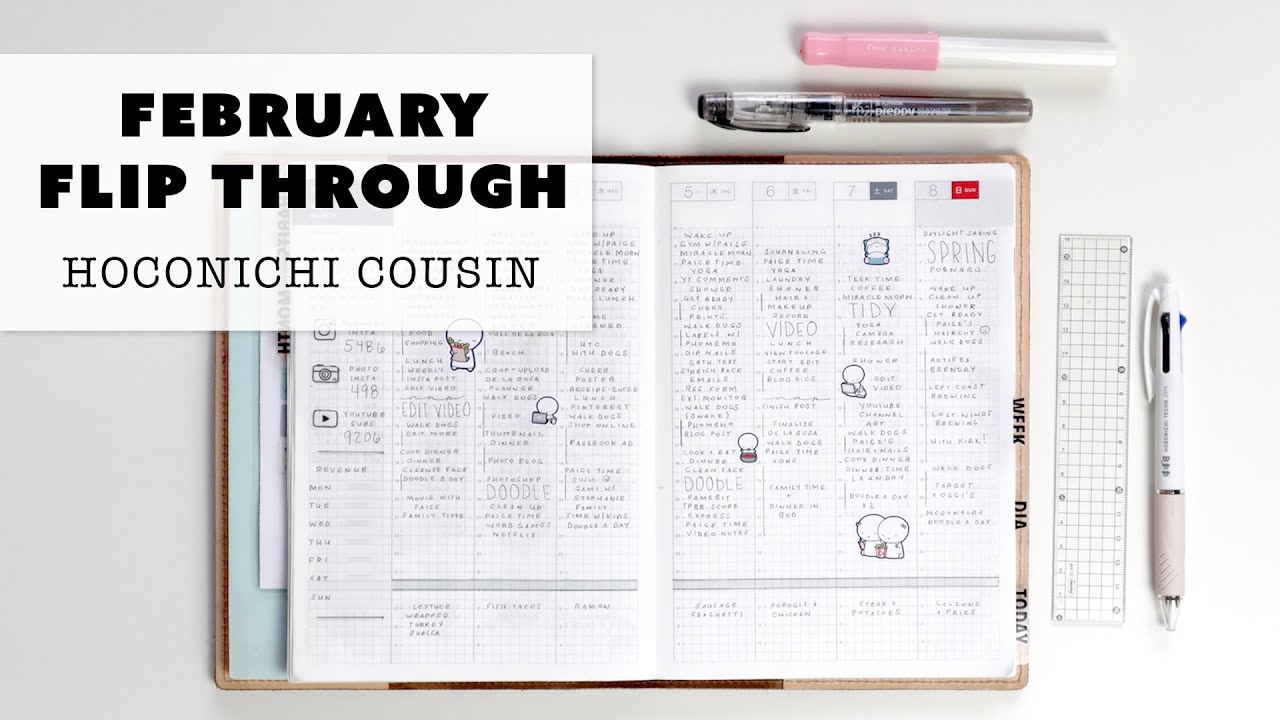 FEBRUARY
FLIP THROUGH
HOCONICHI COUSIN
INSTA
5486
PHOTO
INSTA
498
YOUTUBE
SUBS
9206
REVENUE
MON
TUE
WED
THU
FRI
SAT
SUN
FOOD
SHOPPING
LUNCH
WEEKLY
INSTA POST
EDIT VIDEO
nap
EDIT VIDEO
WALK DOGS
EDIT MORE
COOK DINNER
DINNER
CLEANSE FACE
DOODLE A DAY
MOVIE WITH
PAIGE
FAMILY TIME
LETTUCE
WRAPPED
TURKEY
BURGER
BEACH
CROP + UPLOAD
DE LA ROSA
PLANNER
WALK DOGS
VIDEO
THUMBNAIL
DINNER
PHOTO BLOG
PHOTOSHOP
DOODLE
CLEAN UP
PAIGE TIME
WORD GAMES
NETFLIX
FISH TACOS
水 WED
UTC
WITH DOGS
CHEER
POSTER
RECEIPE-ENTER
LUNCH
PINTEREST
WALK DOGS
SHOP ONLINE
FACEBOOK AD
PAIGE TIME
SUSHI @
SAMI W/
STEPHANIE
FAMILY
SIMS W/KIDS
DOODLE A DAY
RAMEN
5 木 THU
WAKE UP
GYM W/PAIGE
MIRACLE MORN
PAIGE TIME
YOGA
YT COMMENTS
SHOWER
GET READY
CHEER
PRINTS
WALK DOGS
LABELS W/
PHOMEMO
DIP NAILS
GRTH TEXT
STRETCH BACK
EMAILS
RES. FORM
EXT. MONITOR
WALK DOGS
(SHAKE)
PHOMEMO
BLOG POST
COOK + EAT
DINNER
CLEAN FACE
DOODLE
FAMEBIT
TPBB SCORE
EXPRESS
PAIGE TIME
VIDEO NOTES
SAUSAGE
SPAGHETTI
6 金 FRI
JOURNALING
PAIGE TIME
YOGA
LAUNDRY
SHOWER
HAIR +
MAKEUP
RECORD
VIDEO
LUNCH
VIEW FOOTAGE
START EDIT
COFFEE
BLOG PICS
nap
FINISH POST
FINALIZE
DE LA ROSA
WALK DOGS
PAIGE TIME
VONS
FAMILY TIME
+
DINNER IN
BED
PEROGIE +
CHICKEN
7 土 SAT
zzz
TEEK TIME
COFFEE
MIRACLE MORN
TIDY
YOGA
CAMERA
RESEARCH
SHOWER
EDIT
VIDEO
YOUTUBE
CHANNEL
ART
WALK DOGS
PAIGE'S
HAIR + NAILS
COOK DINNER
DINNER TIME
LAUNDRY
DOODLE A DAY
X2
STEAK +
POTATOES
8 日 SUN
DAYLIGHT SAVING
SPRING
FORWARD
WAKE UP
CLEAN UP
SHOWER
GET READY
PAIGE'S
HAIRCUT @
WALK DOGS
ARTIFEX
BREWERY
LEFT COAST
BREWING
LOST WINDS
BREWING
WITH KIRK!
WALK DOGS
TARGET
+ OGGI'S
MCDONALDS
DOODLE A DAY
CALZONE
+ FRIES
WEEK
DIA
TODAY
PILOT kakuno
preppy
HOBONICHI TECHO 2019